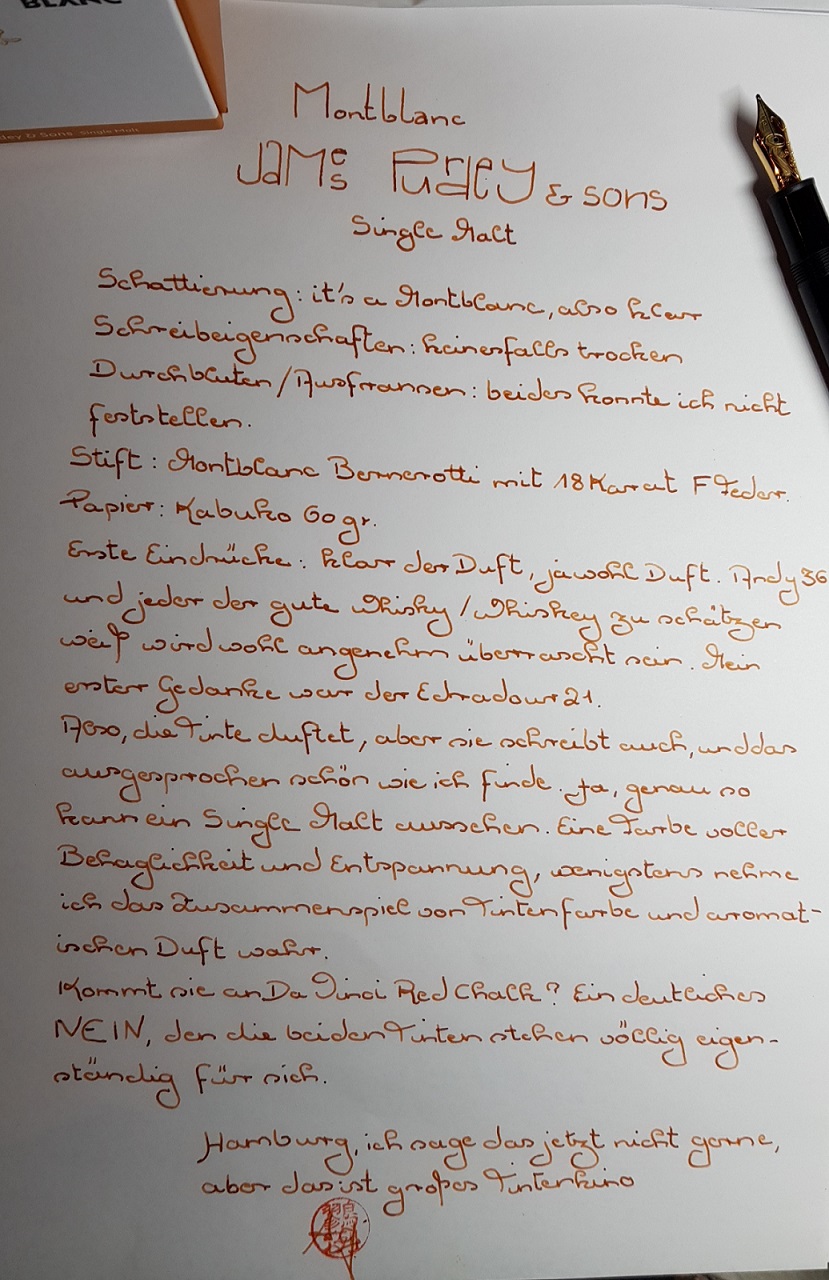 BLANC
Single Malt
Montblanc
James Purdey & sons
Single Malt
Schattierung: it's a Montblanc, also klar
Schreibeigenschaften: keinesfalls trocken
Durchbluten/Ausfransen: beides konnte ich nicht
feststellen.
Stift: Montblanc Bernerotti mit 18 Karat F Feder.
Papier: Kabuko 60 gr.
Erste Eindrücke: klar der Duft, jawohl Duft. Andy36
und jeder der gute Whisky/Whiskey zu schätzen
weiß wird wohl angenehm überrascht sein. Mein
erster Gedanke war der Edradour 21.
Also, die Tinte duftet, aber sie schreibt auch, und das
ausgesprochen schön wie ich finde. Ja, genau so
kann ein Single Malt aussehen. Eine Farbe voller
Behaglichkeit und Entspannung, wenigstens nehme
ich das Zusammenspiel von Tintenfarbe und aromat-
ischen Duft wahr.
Kommt sie an Da Vinci Red Chalk? Ein deutliches
NEIN, den die beiden Tinten stehen völlig eigen-
ständig für sich.
Hamburg, ich sage das jetzt nicht gerne,
aber das ist großes Tintenkino